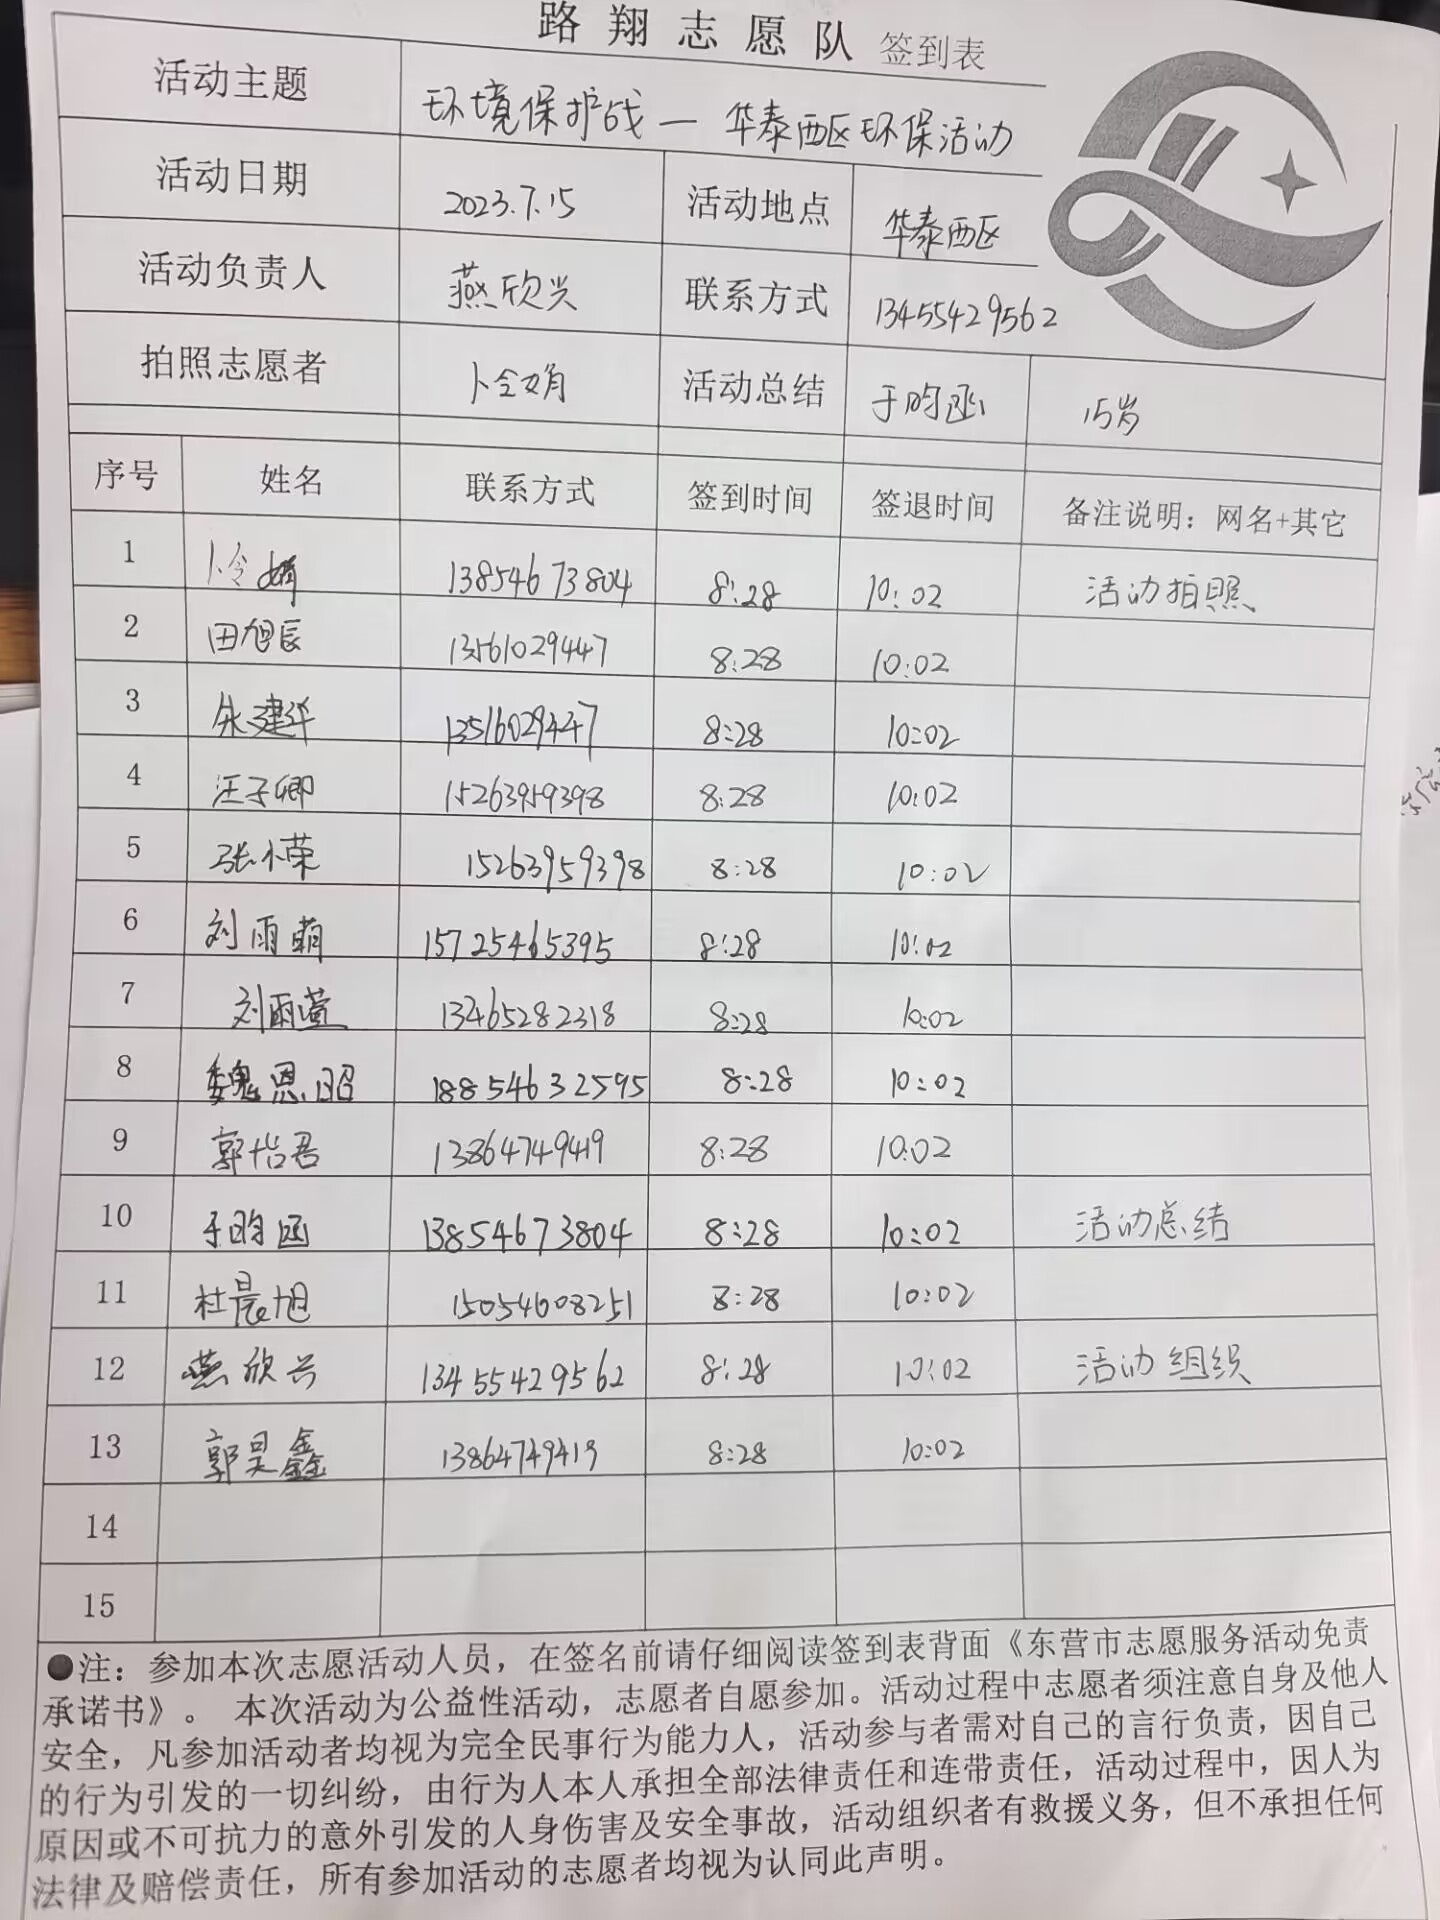 路翔志愿队 签到表
活动主题 环境保护战一华泰西区环保活动
活动日期 2023.7.15 活动地点 华泰西区
活动负责人 燕欣兴 联系方式 13455429562
拍照志愿者 卜令娟 活动总结 于昀函 15岁
序号 姓名 联系方式 签到时间 签退时间 备注说明：网名+其它
1 卜令娟 13854673804 8:28 10:02 活动拍照
2 田旭辰 13561029447 8:28 10:02
3 朱建华 13516029447 8:28 10:02
4 汪子卿 15263959398 8:28 10:02
5 张小荣 15263959398 8:28 10:02
6 刘雨萌 15725465395 8:28 10:02
7 刘雨萱 13465282318 8:28 10:02
8 魏恩昭 18854632595 8:28 10:02
9 郭怡君 13864749419 8:28 10:02
10 于昀函 13854673804 8:28 10:02 活动总结
11 杜晨旭 15054608251 8:28 10:02
12 燕欣兴 13455429562 8:28 10:02 活动组织
13 郭昊鑫 13864749419 8:28 10:02
14
15
●注：参加本次志愿活动人员，在签名前请仔细阅读签到表背面《东营市志愿服务活动免责
承诺书》。 本次活动为公益性活动，志愿者自愿参加。活动过程中志愿者须注意自身及他人
安全，凡参加活动者均视为完全民事行为能力人，活动参与者需对自己的言行负责，因自己
的行为引发的一切纠纷，由行为人本人承担全部法律责任和连带责任，活动过程中，因人为
原因或不可抗力的意外引发的人身伤害及安全事故，活动组织者有救援义务，但不承担任何
法律及赔偿责任，所有参加活动的志愿者均视为认同此声明。